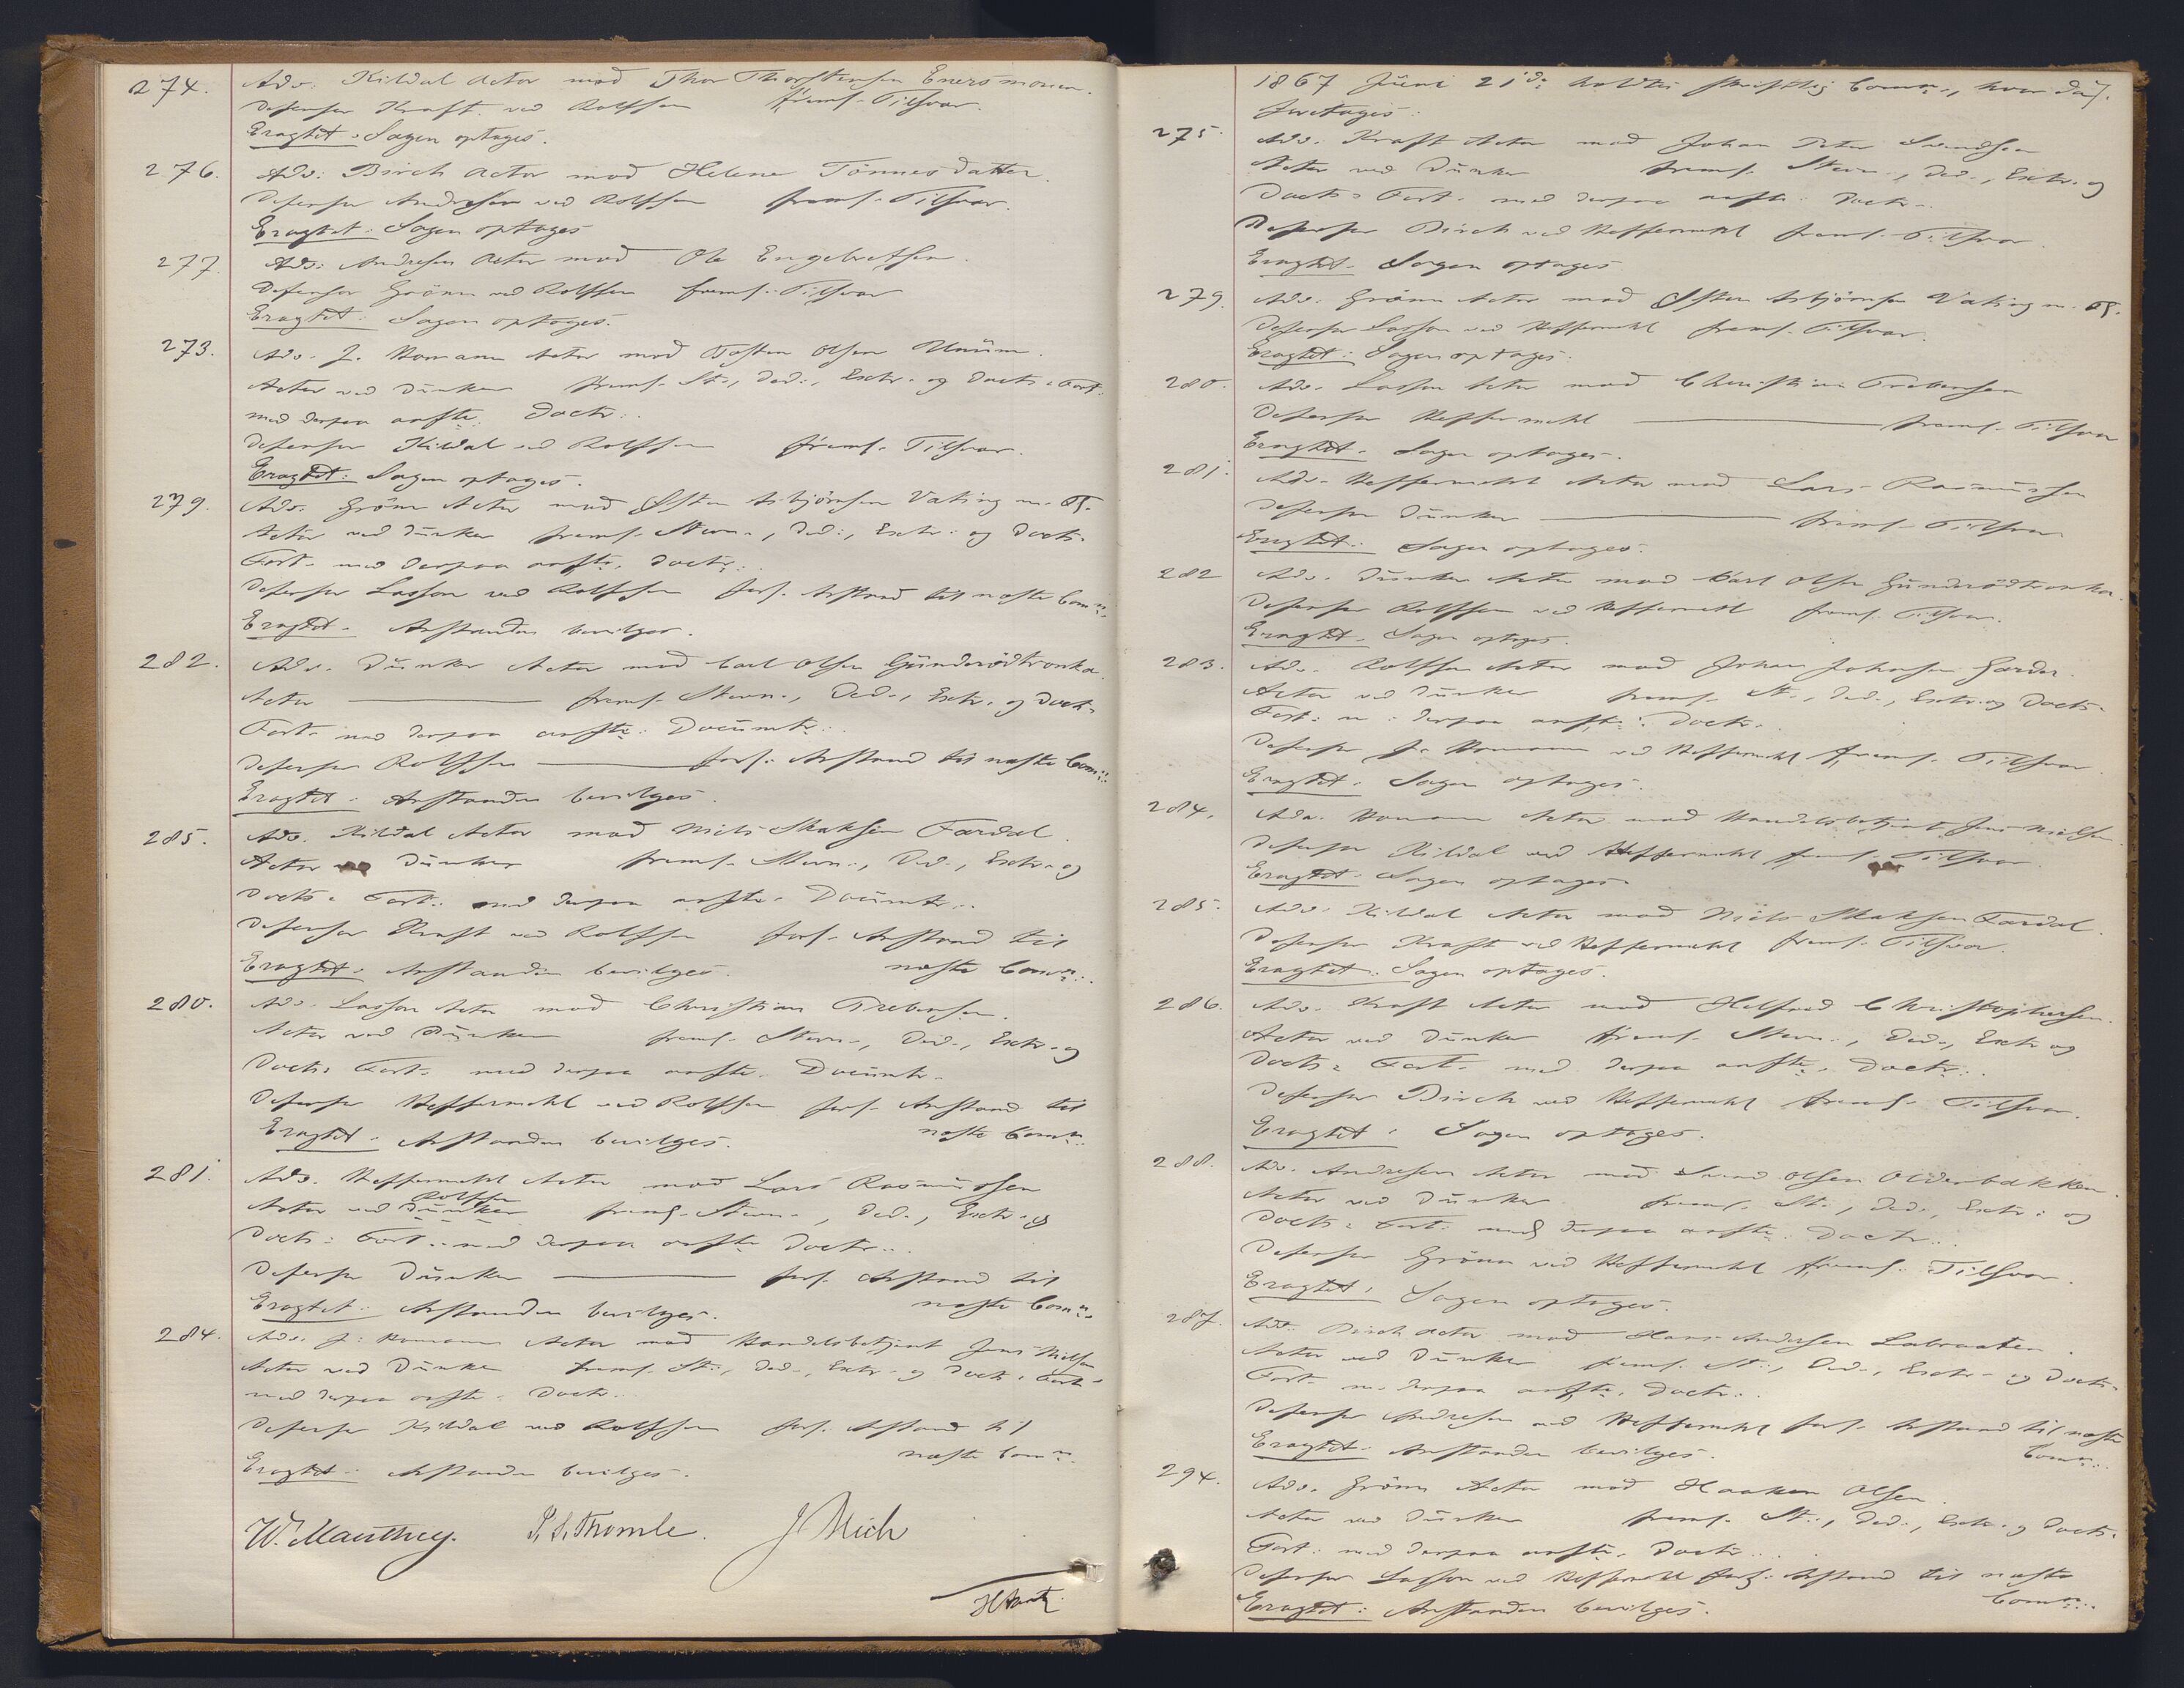 274. Adv. Kildal Actor mod Thor Thorstensen Enersmoen.
Defensor Kraft ved Rolfsen freml. Tilsvar.
Eragtet: Sagen optages.
276. Adv. Birch Actor mod Helene Tönnesdatter.
Defensor Andresen ved Rolfsen freml. Tilsvar.
Eragtet: Sagen optages
277. Adv. Andresen Actor mod Ole Engebretsen.
Defensor Grönn ved Rolfsen freml. Tilsvar
Eragtet: Sagen optages.
273. Adv. J. Homann Actor mod Tosten Olsen
Actor ved Dunker freml. St., Ded., Extr. og Docts. Fort.
med derpaa anfte. Doctr.
Defensor Kildal ved Rolfsen freml. Tilsvar.
Eragtet: Sagen optages.
279. Adv. Grönn Actor mod Østen Asbjörnsen Vating m. Fl.
Actor ved Dunker freml. Stevn., Ded., Extr. og Docts.
Fort. med derpaa anfte. Doctr.
Defensor Lasson ved Rolfsen forl. Anstand til næste Comn.
Eragtet. Anstanden bevilges.
282. Adv. Dunker Actor mod Carl Olsen Gunderödtronka.
Actor freml. Stevn., Ded., Extr. og Docts.
Fort. med derpaa anfte. Documtr.
Defensor Rolfsen forl. Anstand til næste Comn.
Eragtet: Anstanden bevilges.
285. Adv. Kildal Actor mod Niels Skaksen Fardal.
Actor ved Dunker freml. Stevn., Ded., Extr. og
Docts. Fort. med derpaa anfte. Documtr.
Defensor Kraft ved Rolfsen forl. Anstand til
næste Comn.
Eragtet. Anstanden bevilges.
280. Adv. Lasson Actor mod Christian Trebensen.
Actor ved Dunker freml. Stevn., Ded., Extr. og
Docts. Fort. med derpaa anfte. Documtr.
Defensor Heffermehl ved Rolfsen forl. Anstand til
næste Comn.
Eragtet. Anstanden bevilges.
281. Adv. Heffermehl Actor mod Lars Rasmussen
Rolfsen
Actor ved Dunker freml. Stevn., Ded., Extr. og
Docts. Fort. med derpaa anfte Doctr.
Defensor Dunker forl. Anstand til
næste Comn.
Eragtet. Anstanden bevilges.
284. Adv. J. Homann Actor mod Handelsbetjent Jens Nielsen
Actor ved Dunker freml. St., Ded., Extr. og Docts. Fort.
med derpaa anfte. Doctr.
Defensor Kildal ved Rolfsen forl. Anstand til
næste Comn.
Eragtet: Anstanden bevilges.
W. Manthey. P. S. Thomle. J Mich
1867 Juni 21de holdtes skriftlig Comn., hvor da
foretoges:
275. Adv. Kraft Actor mod Johan Peter Svendsen
Actor ved Dunker freml. Stevn., Ded., Extr. og
Docts. Fort. med derpaa anfte. Doctr.
Defensor Birch ved Heffermehl freml. Tilsvar.
Eragtet. Sagen optages
279. Adv. Grönn Actor mod Østen Asbjörnsen Vating m. Fl.
Defensor Lasson ved Heffermehl freml. Tilsvar.
Eragtet: Sagen optages.
280. Adv. Lasson Actor mod Christian Trebensen
Defensor Heffermehl freml. Tilsvar
Eragtet. Sagen optages.
281. Adv. Heffermehl Actor mod Lars Rasmussen
Defensor Dunker freml. Tilsvar
Eragtet. Sagen optages.
282 Adv. Dunker Actor mod Carl Olsen Gunderödtronka.
Defensor Rolfsen ved Heffermehl freml. Tilsvar.
Eragtet. Sagen optages.
283. Adv. Rolfsen Actor mod Johan Johnsen Garder.
Actor ved Dunker freml. St., Ded., Extr. og Docts.
Fort. m. derpaa anfte. Doctr.
Defensor J. Homann ved Heffermehl freml. Tilsvar.
Eragtet. Sagen optages.
284. Adv. Homann Actor mod Handelsbetjent Jens Nielsen.
Defensor Kildal ved Heffermehl freml. Tilsvar.
Eragtet. Sagen optages.
285. Adv. Kildal Actor mod Niels Skaksen Fardal.
Defensor Kraft ved Heffermehl freml. Tilsvar.
Eragtet: Sagen optages.
286. Adv. Kraft Actor mod Helfred Christophersen.
Actor ved Dunker freml. Stevn., Ded., Extr og
Docts. Fort. med derpaa anfte. Doctr.
Defensor Birch ved Heffermehl freml. Tilsvar.
Eragtet. Sagen optages.
288. Adv. Andresen Actor mod Svend Olsen Olderbakken.
Actor ved Dunker freml. St., Ded., Extr. og
Docts. Fort. med derpaa anfte. Doctr.
Defensor Grönn ved Heffermehl freml. Tilsvar.
Eragtet. Sagen optages.
287. Adv. Birch Actor mod Hans Andersen Labraaten.
Actor ved Dunker freml. St., Ded., Extr. og Docts.
Fort. m. derpaa anfte. Doctr.
Defensor Andresen ved Heffermehl forl. Anstand til næste
Comn.
Eragtet. Anstanden bevilges.
294. Adv. Grönn Actor mod Haaken Olsen.
Actor ved Dunker freml. St., Ded., Extr. og Docts.
Fort. med derpaa anfte. Doctr.
Defensor Lasson ved Heffermehl forl. Anstand til næste
Comn.
Eragtet: Anstanden bevilges.